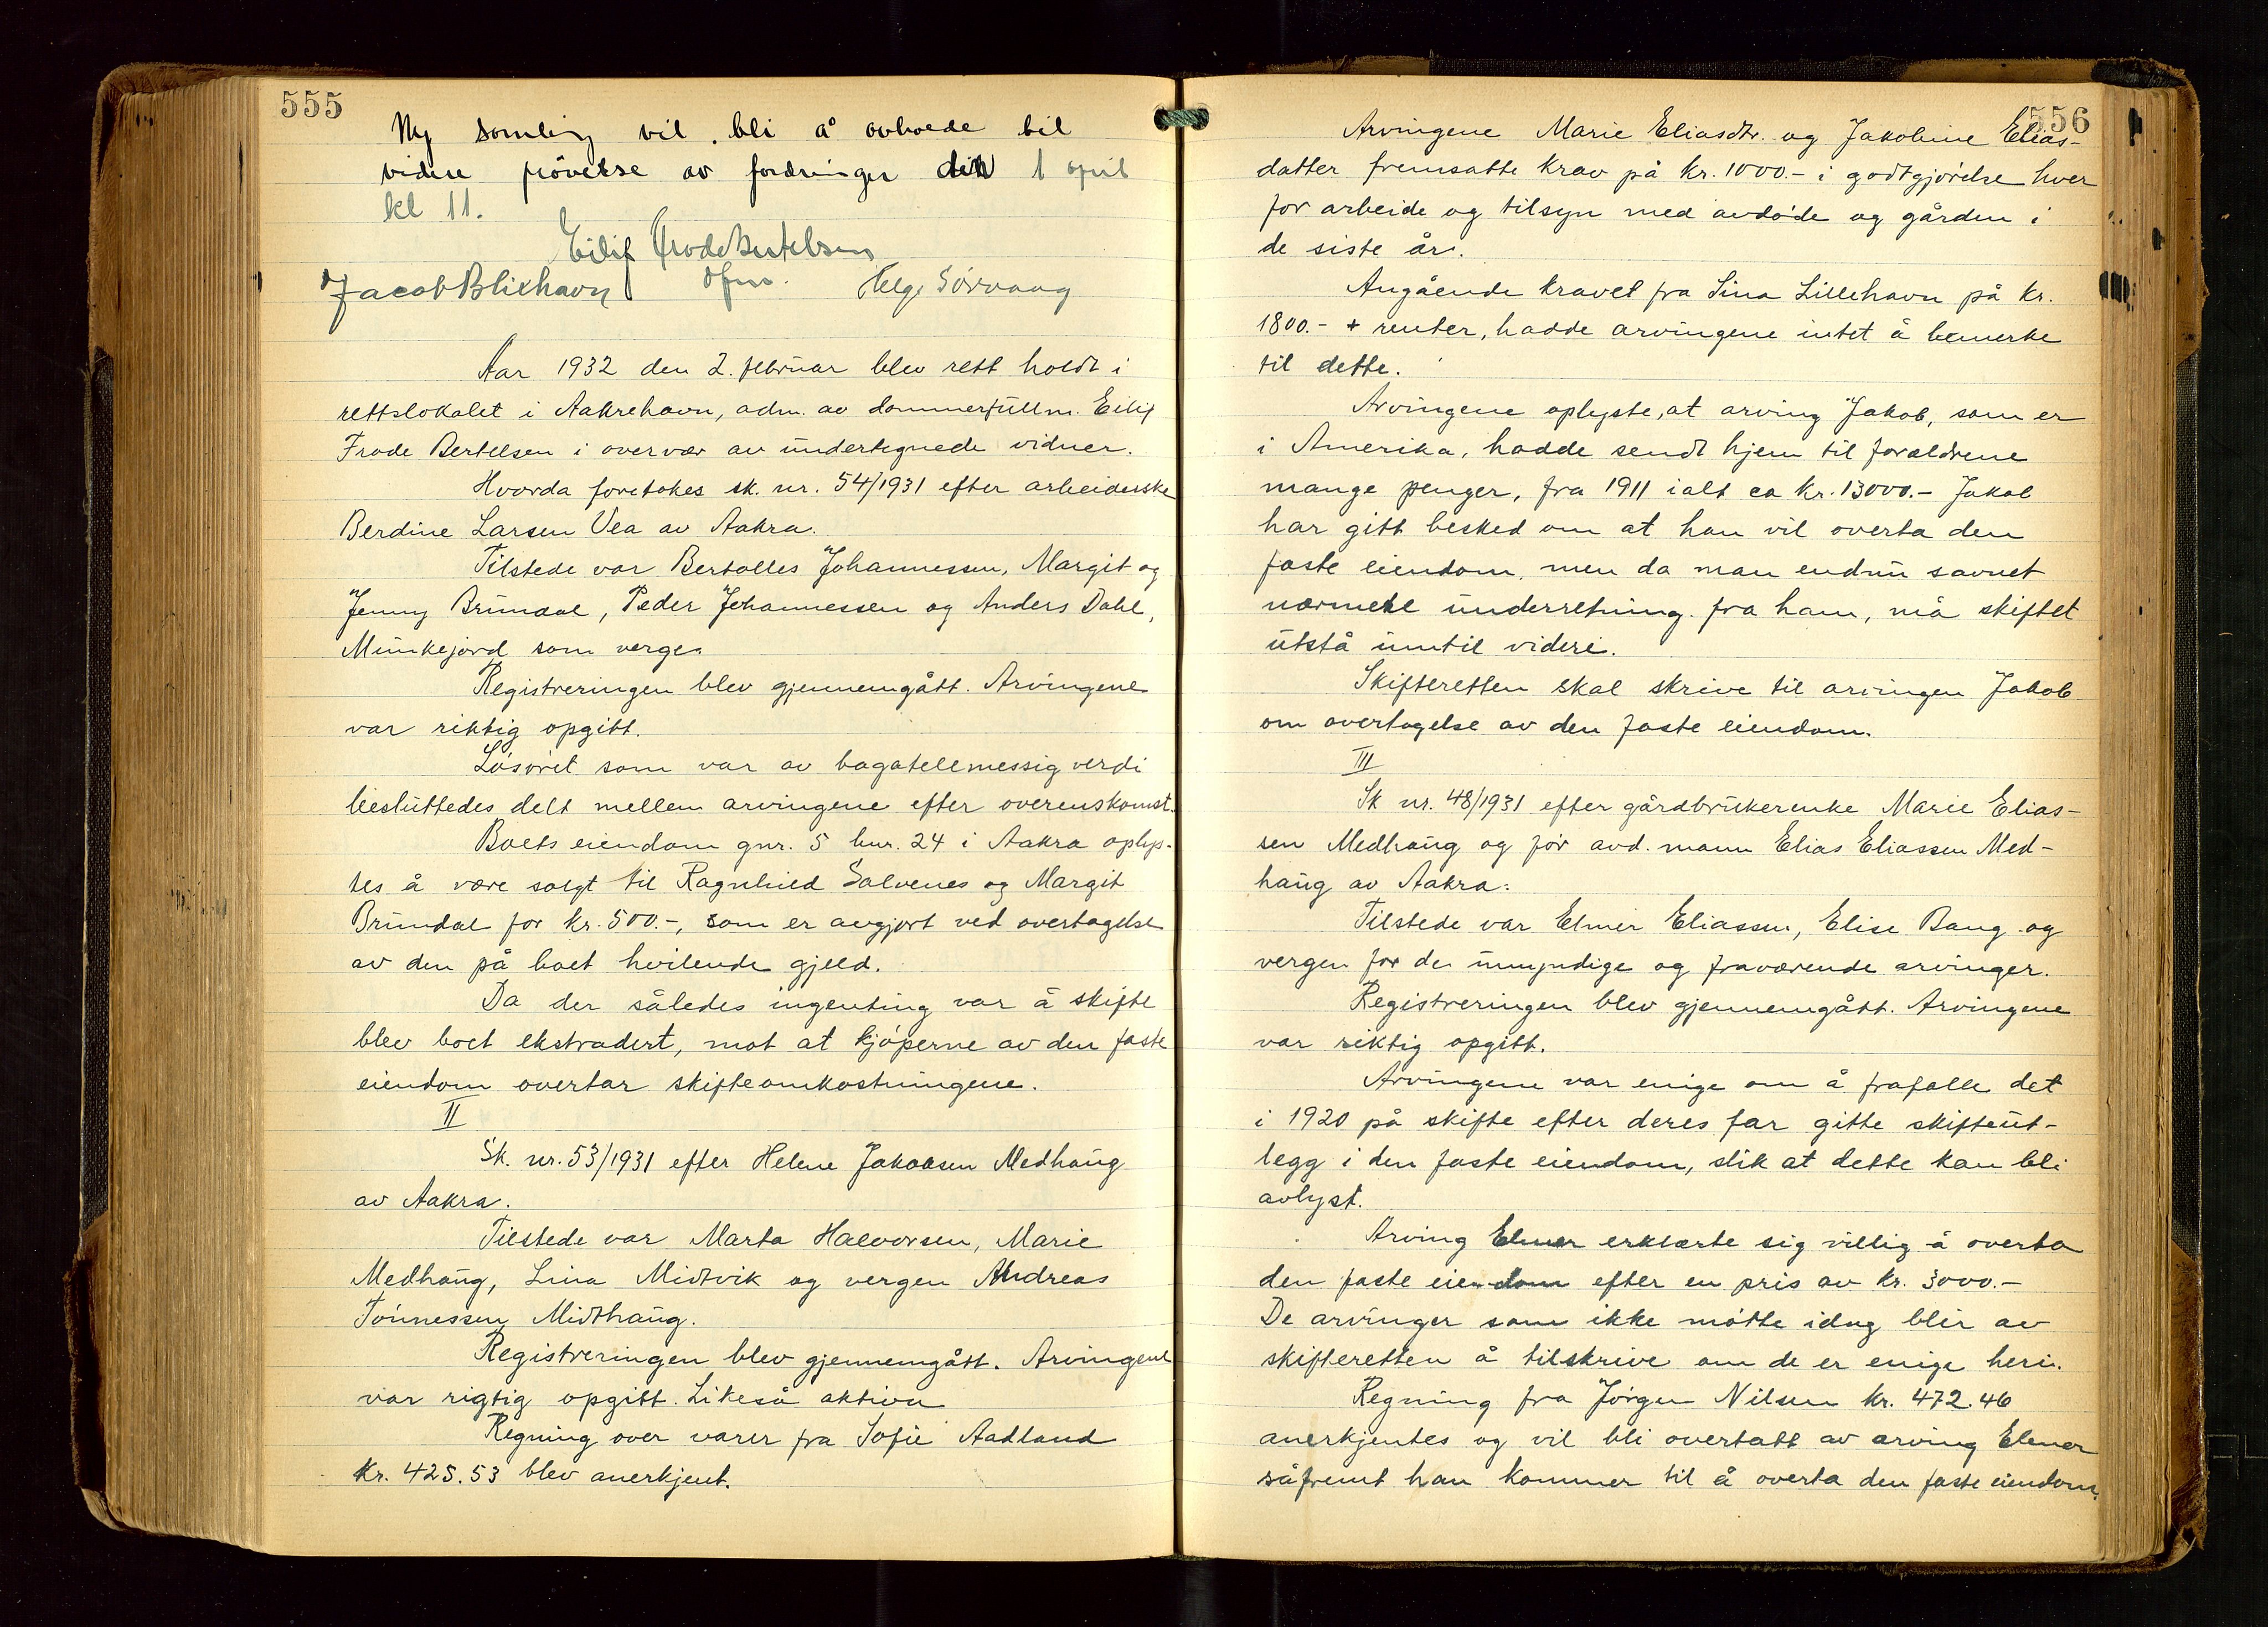 555
Ny samling vil bli å avholde til
videre prövelse av fordringer den 1 april
kl 11.
Eilif Frode Bertelsen
Jacob Blixhavn dfm. Helge Sörvaag
Aar 1932 den 2. februar blev rett holdt i
rettslokalet i Aakrehavn, adm. av dommerfullm. Eilif
Frode Bertelsen i overvær av undertegnede vidner.
Hvorda foretokes sk. nr. 54/1931 efter arbeiderske
Berdine Larsen Vea av Aakra.
Tilstede var Bertolles Johannessen, Margit og
Jenny Brundal, Peder Johannessen og Anders Dahl,
Munkejord som verge.
Registreringen blev gjennemgått. Arvingene
var riktig opgitt.
Lösöret som var av bagatellmessig verdi
besluttedes delt mellem arvingene efter overenskomst.
Boets eiendom gnr. 5 bnr. 24 i Aakra oplys-
tes å være solgt til Ragnhild Salvenes og Margit
Brundal for kr. 500.-, som er avgjort ved overtagelse
av den på boet hvilende gjeld.
Da der således ingenting var å skifte
blev boet ekstradert, mot at kjöperne av den faste
eiendom overtar skifteomkostningene.
II
Sk. nr. 53/1931 efter Helene Jakobsen Medhaug
av Aakra.
Tilstede var Marta Halvorsen, Marie
Medhaug, Lina Midtvik og vergen Andreas
Tönnessen Midthaug.
Registreringen blev gjennemgått. Arvingene
var rigtig opgitt. Likeså aktiva
Regning over varer fra Sofie Aadland
kr. 425.53 blev anerkjent.
556
Arvingene Marie Eliasdtr. og Jakobine Elias-
datter fremsatte krav på kr. 1000.- i godtgjörelse hver
for arbeide og tilsyn med avdöde og gården i
de siste år.
Angående kravet fra Sina Lillehavn på kr.
1800.- + renter, hadde arvingene intet å bemerke
til dette.
Arvingene oplyste, at arving Jakob, som er
i Amerika, hadde sendt hjem til forældrene
mange penger, fra 1911 ialt ca kr. 13000.- Jakob
har gitt besked om at han vil overta den
faste eiendom, men da man endnu savnet
nærmere underretning fra ham, må skiftet
utstå inntil videre.
Skifteretten skal skrive til arvingen Jakob
om overtagelse av den faste eiendom.
III
Sk nr. 48/1931 efter gårdbrukerenke Marie Elias-
sen Medhaug og för avd. mann Elias Eliassen Med-
haug av Aakra.
Tilstede var Elmer Eliassen, Elise Bang og
vergen for de umyndige og fraværende arvinger.
Registreringen blev gjennemgått. Arvingene
var riktig opgitt.
Arvingene var enige om å frafalle det
i 1920 på skifte efter deres far gitte skifteut-
legg i den faste eiendom, slik at dette kan bli
avlyst.
Arving Elmer erklærte sig villig å overta
den faste eiendom efter en pris av kr. 3000.-
De arvinger som ikke mötte idag blir av
skifteretten å tilskrive om de er enige heri.
Regning fra Jörgen Nilsen kr. 472.46
anerkjentes og vil bli overtatt av arving Elmer
såfremt han kommer til å overta den faste eiendom.